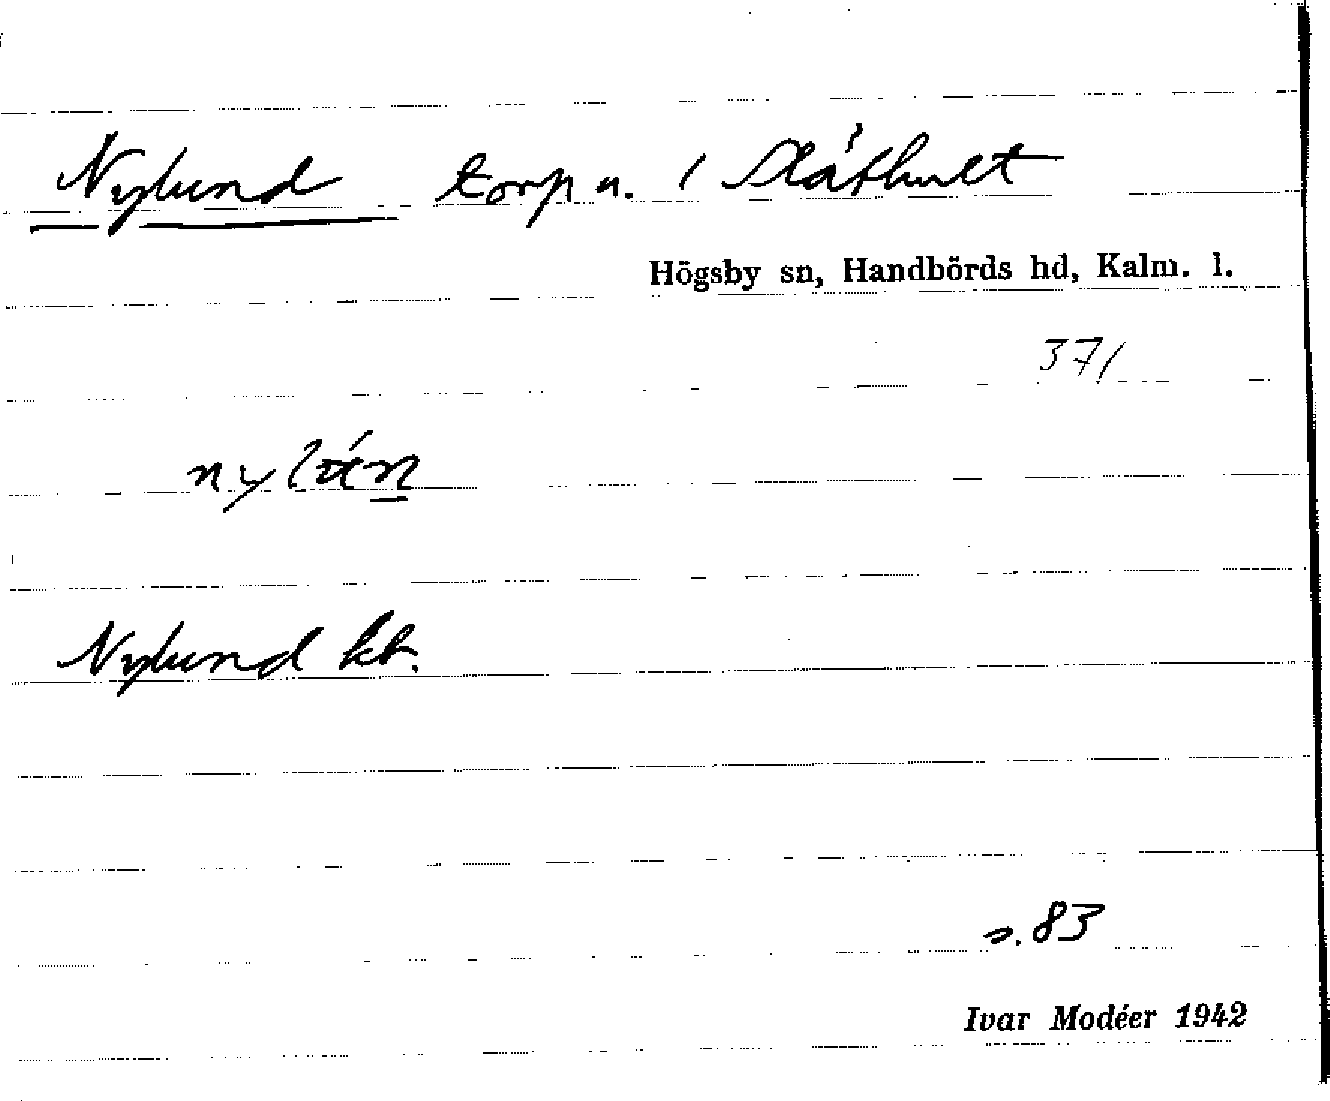 Nylund torp u. / Slåthult
Högsby sn, Handbörds hd, Kalm. l.
371
nylún
Nylund kb.
s. 83
Ivar Modéer 1942